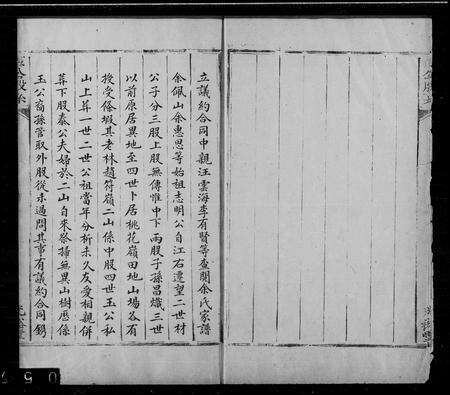 立議約合同中親汪雲海李有賢等查閱余氏家譜
余佩山余惠思等始祖志明公自江右遷望二世材
公子分三股上股無傳惟中下兩股子孫昌熾三世
以前原居異地至四世卜居桃花嶺田地山場各有
授受條塅其老林趙符嶺二山係中股四世玉公私
山上葬一世二世公祖當年分析未久友愛相親併
葬下股泰公夫婦於二山自來祭掃無異山樹歷係
玉公裔孫管取外股從未過問其事有議約合同鈐